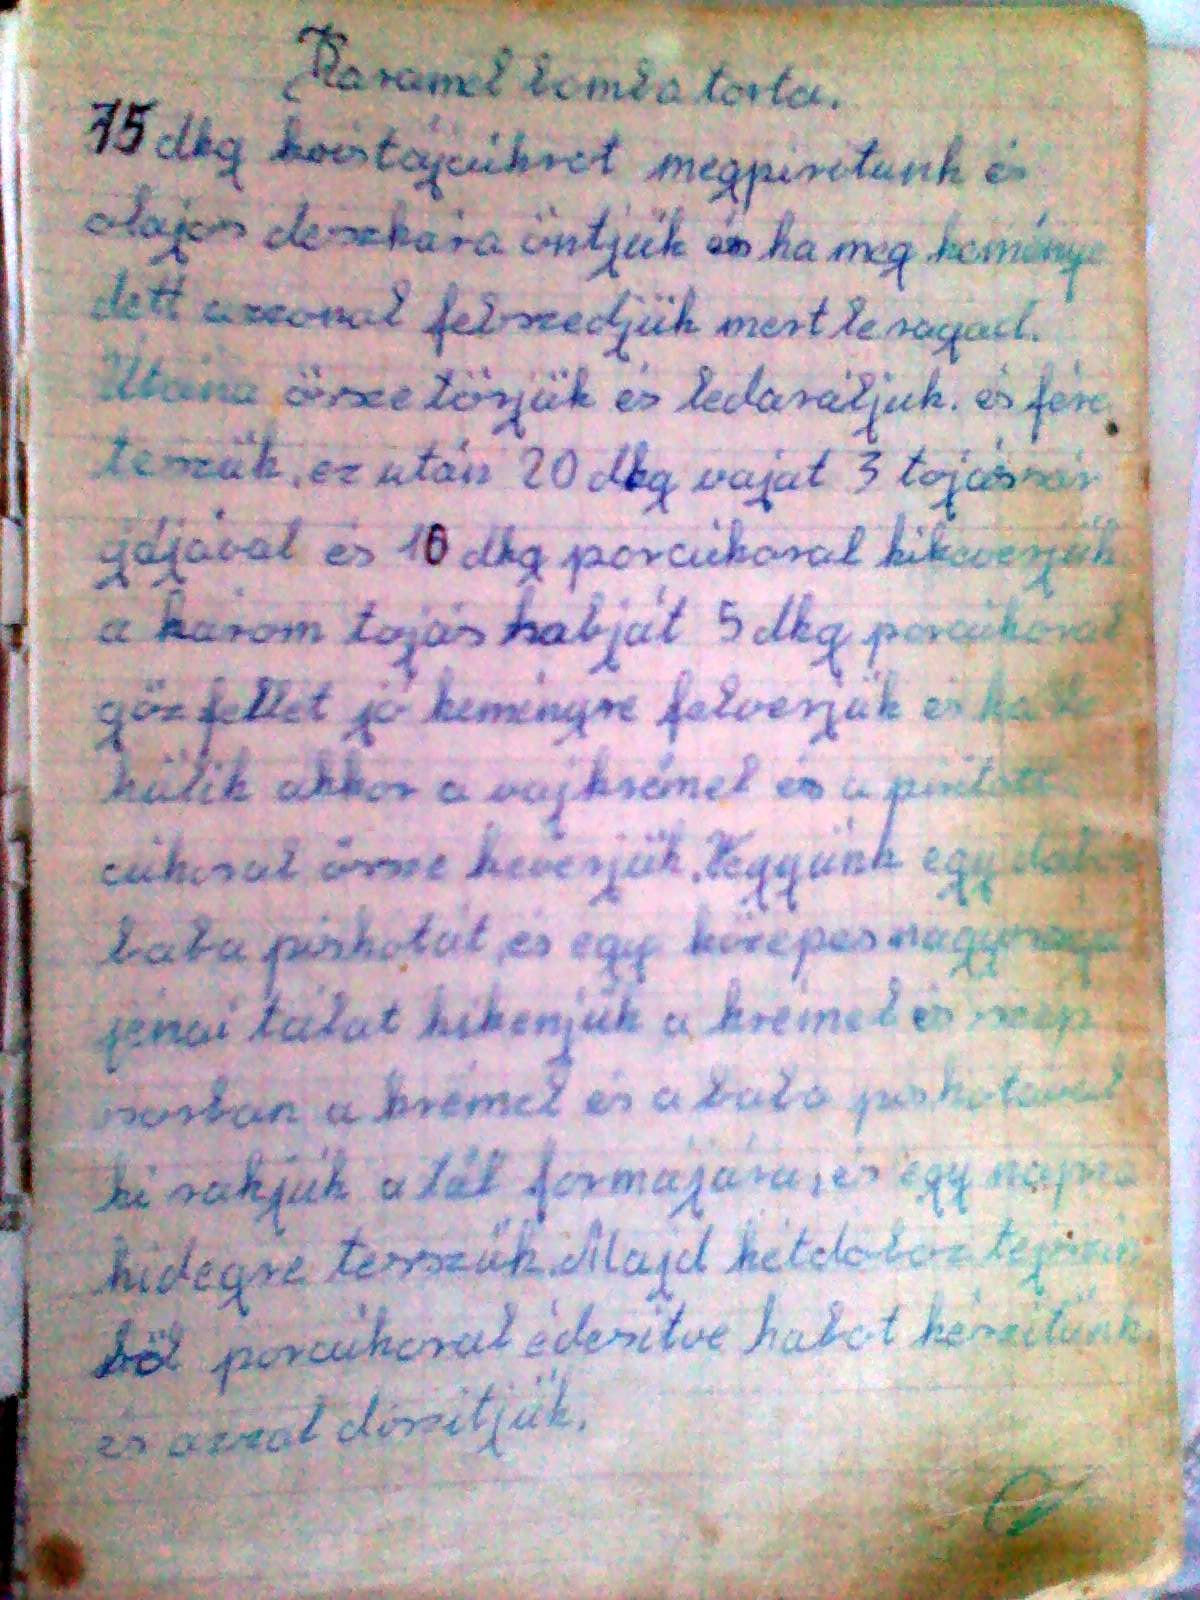 Karamel bomba torta.
15 dkg kristájcukrot megpiritunk és
olajos deszkára öntjük és ha meg keménye
dett azzonal felszedjük mert leragad.
Utána össze törjük és ledaráljuk. és fére
teszük, ez után 20 dkg vajat 3 tojás sár
gájával és 10 dkg porcukoral kikeverjük
a három tojás habját 5 dkg porcukoral
göz fellet jó keményre felverjük és ha le
hülik akkor a vajkrémel és a piritott
cukoral össze keverjük. Vegyünk egy doboz
baba piskotát és egy közepes nagyságu
jénai tálat kikenjük a krémel és szép
sorban a krémel és a baba piskotával
ki rakjuk a tál formájára, és egy napra
hidegre tesszük. Majd két doboz tejszin
böl porcukoral édesitve habot készitünk
és azzal diszitjük.